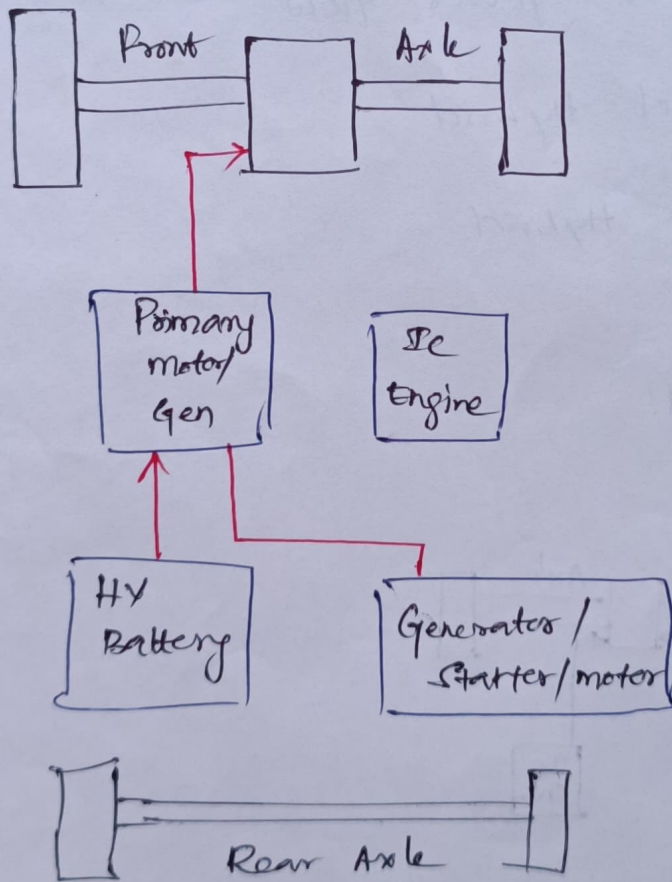 Front Axle
Primary
motor/
Gen
IC
Engine
HV
Battery
Generator/
Starter/motor
Rear Axle